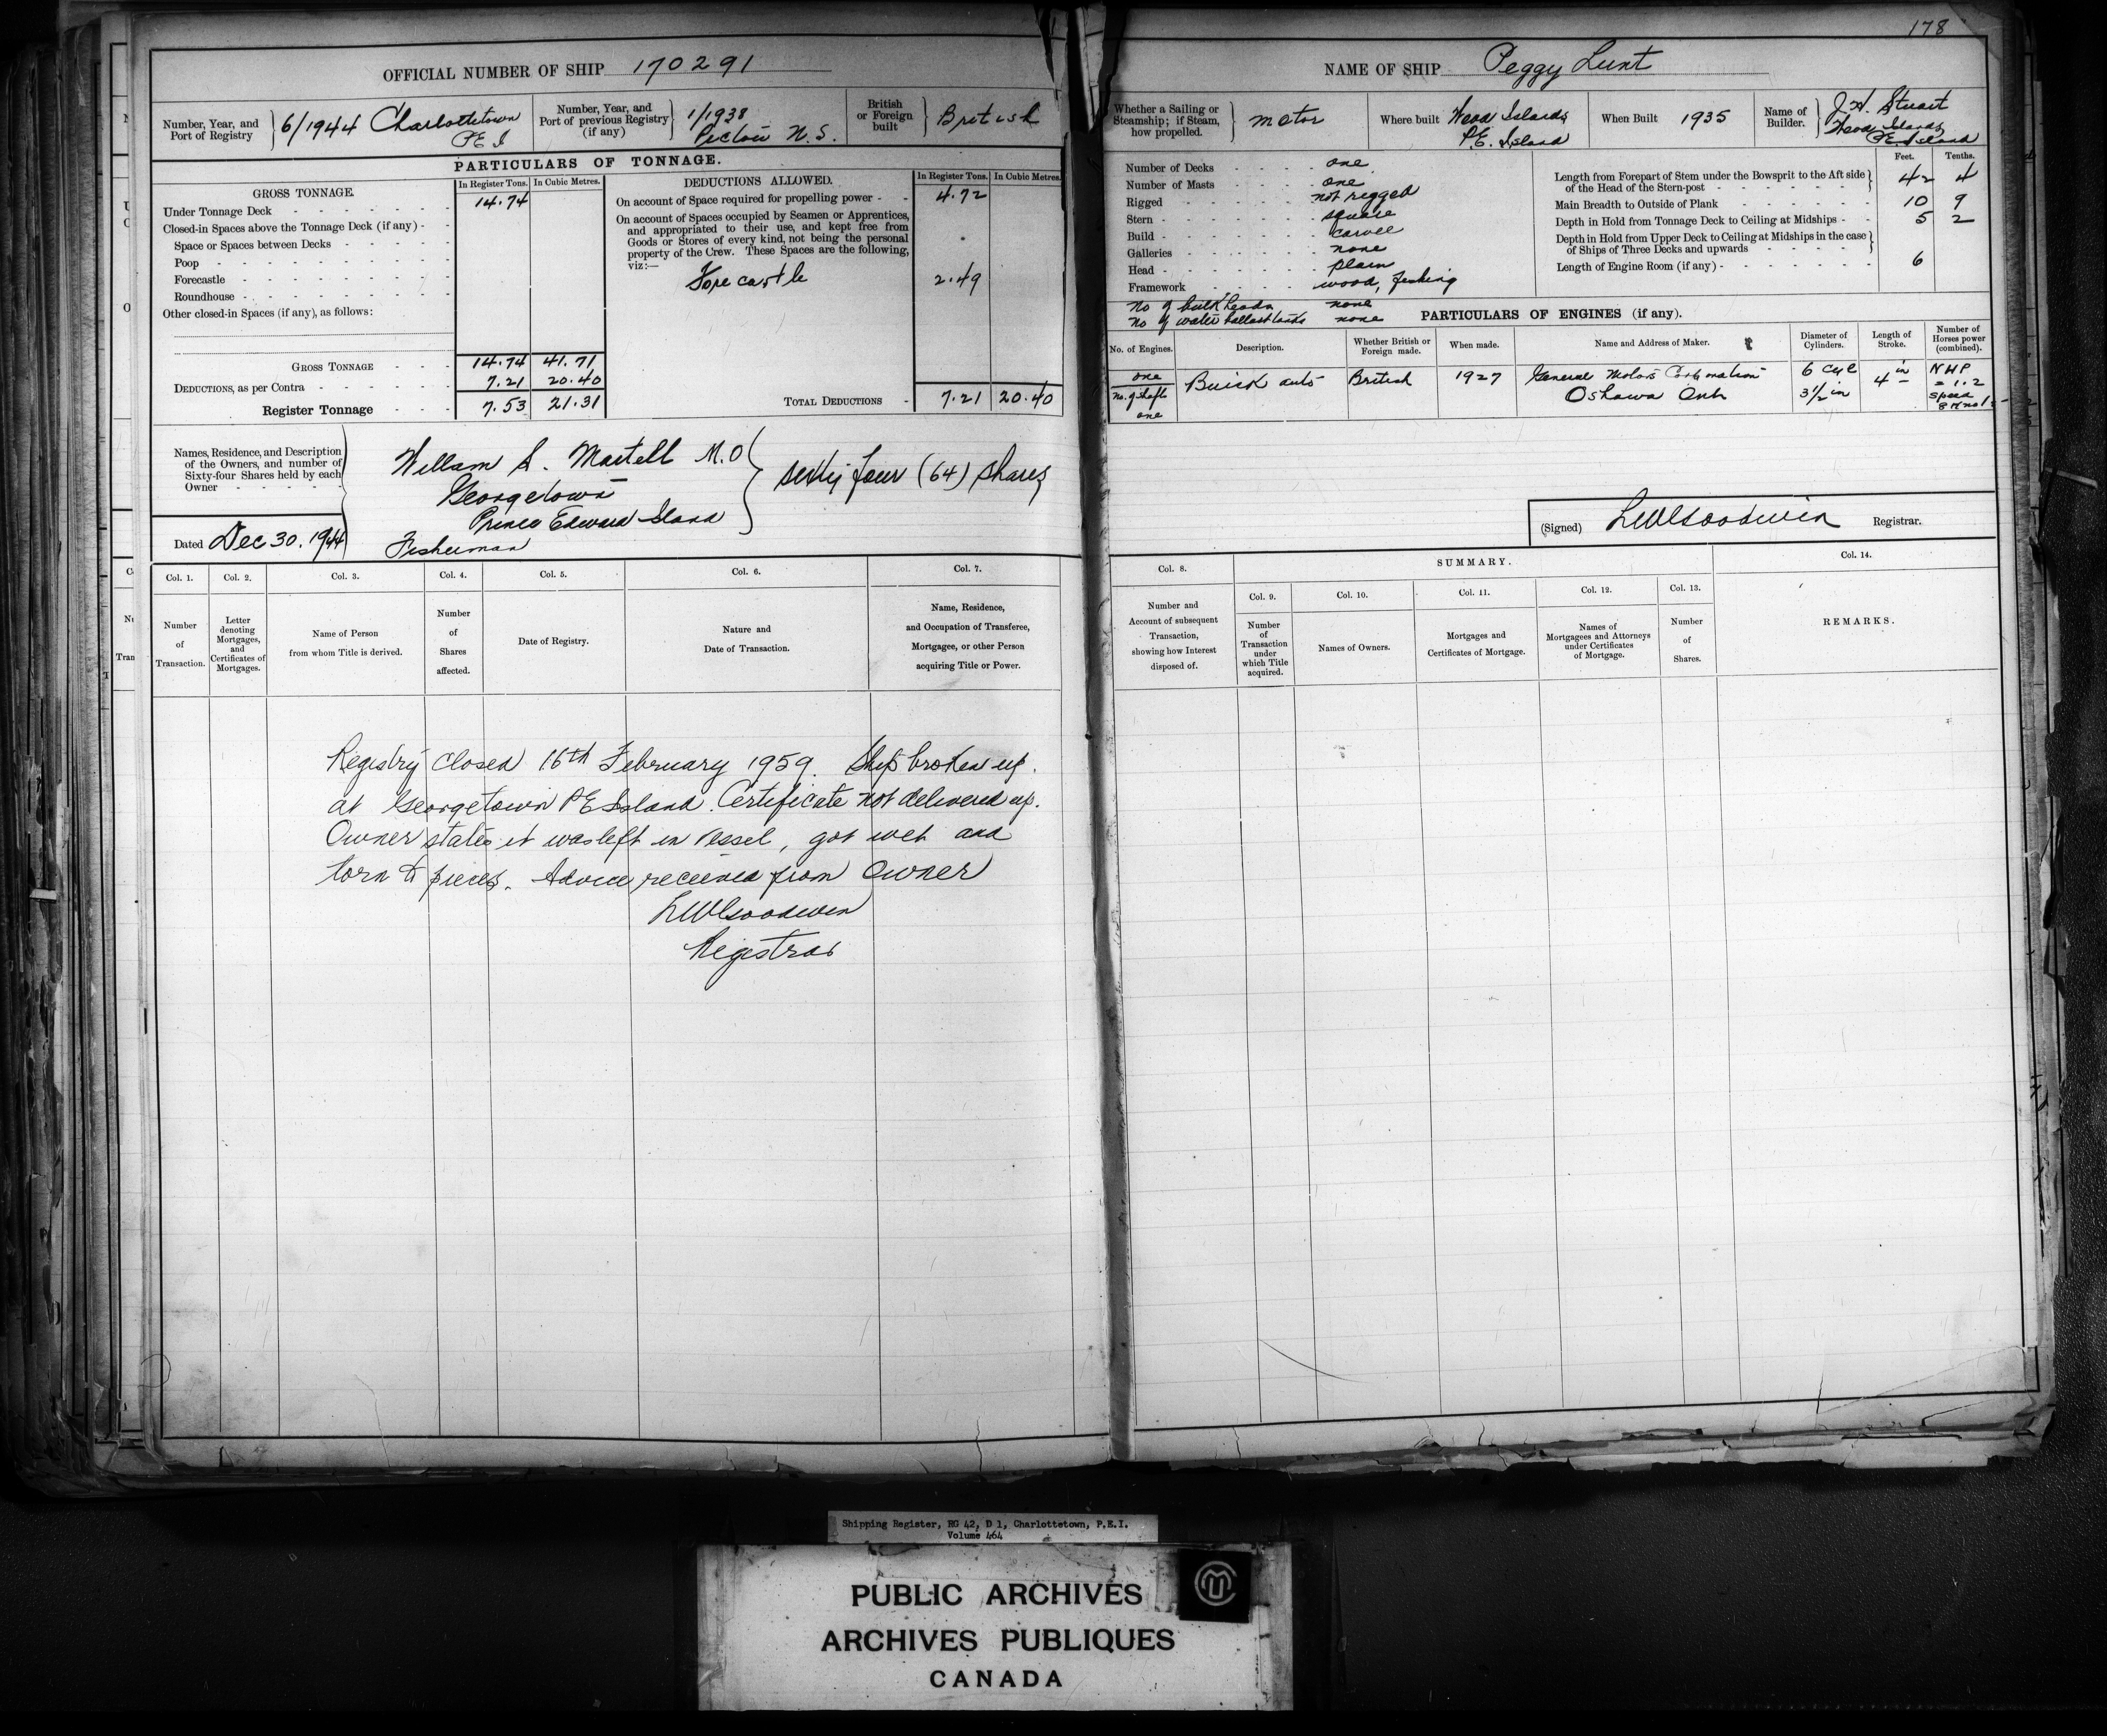 178
OFFICIAL NUMBER OF SHIP 170291
NAME OF SHIP Peggy Lunt
Number, Year, and Port of Registry
6/1944 Charlottetown
P E I
Number, Year, and Port of previous Registry (if any)
1/1938
Pictou N. S.
British or Foreign built
British
Whether a Sailing or Steamship; if Steam, how propelled.
motor
Where built
Wood Islands
P.E. Island
When Built 1935
Name of Builder.
J. H. Stuart
Wood Islands
P.E. Island
PARTICULARS OF TONNAGE.
GROSS TONNAGE.
In Register Tons. In Cubic Metres.
Under Tonnage Deck 14.74
Closed-in Spaces above the Tonnage Deck (if any)
Space or Spaces between Decks
Poop
Forecastle
Roundhouse
Other closed-in Spaces (if any), as follows:
GROSS TONNAGE 14.74 41.71
DEDUCTIONS, as per Contra 7.21 20.40
Register Tonnage 7.53 21.31
DEDUCTIONS ALLOWED.
In Register Tons. In Cubic Metres.
On account of Space required for propelling power 4.72
On account of Spaces occupied by Seamen or Apprentices,
and appropriated to their use, and kept free from
Goods or Stores of every kind, not being the personal
property of the Crew. These Spaces are the following,
viz:—
Fore castle 2.49
TOTAL DEDUCTIONS 7.21 20.40
Number of Decks one
Number of Masts one
Rigged not rigged
Stern square
Build carvel
Galleries none
Head plain
Framework wood, fishing
no of bulkheads none
no of water ballast tanks none
Feet. Tenths.
Length from Forepart of Stem under the Bowsprit to the Aft side of the Head of the Stern-post 42 4
Main Breadth to Outside of Plank 10 9
Depth in Hold from Tonnage Deck to Ceiling at Midships 5 2
Depth in Hold from Upper Deck to Ceiling at Midships in the case of Ships of Three Decks and upwards
Length of Engine Room (if any) 6
PARTICULARS OF ENGINES (if any).
No. of Engines.
Description.
Whether British or Foreign made.
When made.
Name and Address of Maker.
Diameter of Cylinders.
Length of Stroke.
Number of Horses power (combined).
one
no. of shafts
one
Buick auto
British
1927
General Motors Corporation
Oshawa Ont
6 cyl
3 1/2 in
4 in
NHP
= 1.2
speed
8
Names, Residence, and Description
of the Owners, and number of
Sixty-four Shares held by each
Owner
William S. Martell M.O
Georgetown
Prince Edward Island
Fisherman
sixty four (64) shares
Dated Dec 30. 1944
(Signed) LWGoodwin Registrar.
Col. 1.
Number of Transaction.
Col. 2.
Letter denoting Mortgages, and Certificates of Mortgages.
Col. 3.
Name of Person from whom Title is derived.
Col. 4.
Number of Shares affected.
Col. 5.
Date of Registry.
Col. 6.
Nature and Date of Transaction.
Col. 7.
Name, Residence, and Occupation of Transferee, Mortgagee, or other Person acquiring Title or Power.
Col. 8.
Number and Account of subsequent Transaction, showing how Interest disposed of.
SUMMARY.
Col. 9.
Number of Transaction under which Title acquired.
Col. 10.
Names of Owners.
Col. 11.
Mortgages and Certificates of Mortgage.
Col. 12.
Names of Mortgagees and Attorneys under Certificates of Mortgage.
Col. 13.
Number of Shares.
Col. 14.
REMARKS.
Registry closed 16th February 1959. Ship broken up.
at Georgetown P E Island. Certificate not delivered up.
Owner states it was left in vessel, got wet and
torn to pieces. Advice received from Owner
LWGoodwin
Registrar
Shipping Register, RG 42, D 1, Charlottetown, P.E.I.
Volume 464
PUBLIC ARCHIVES
ARCHIVES PUBLIQUES
CANADA